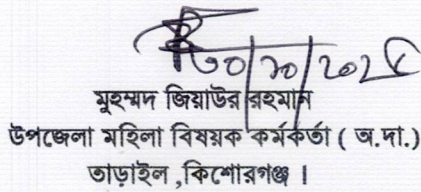 ৩০/১০/২০২৫
মুহম্মদ জিয়াউর রহমান
উপজেলা মহিলা বিষয়ক কর্মকর্তা ( অ.দা.)
তাড়াইল ,কিশোরগঞ্জ ।